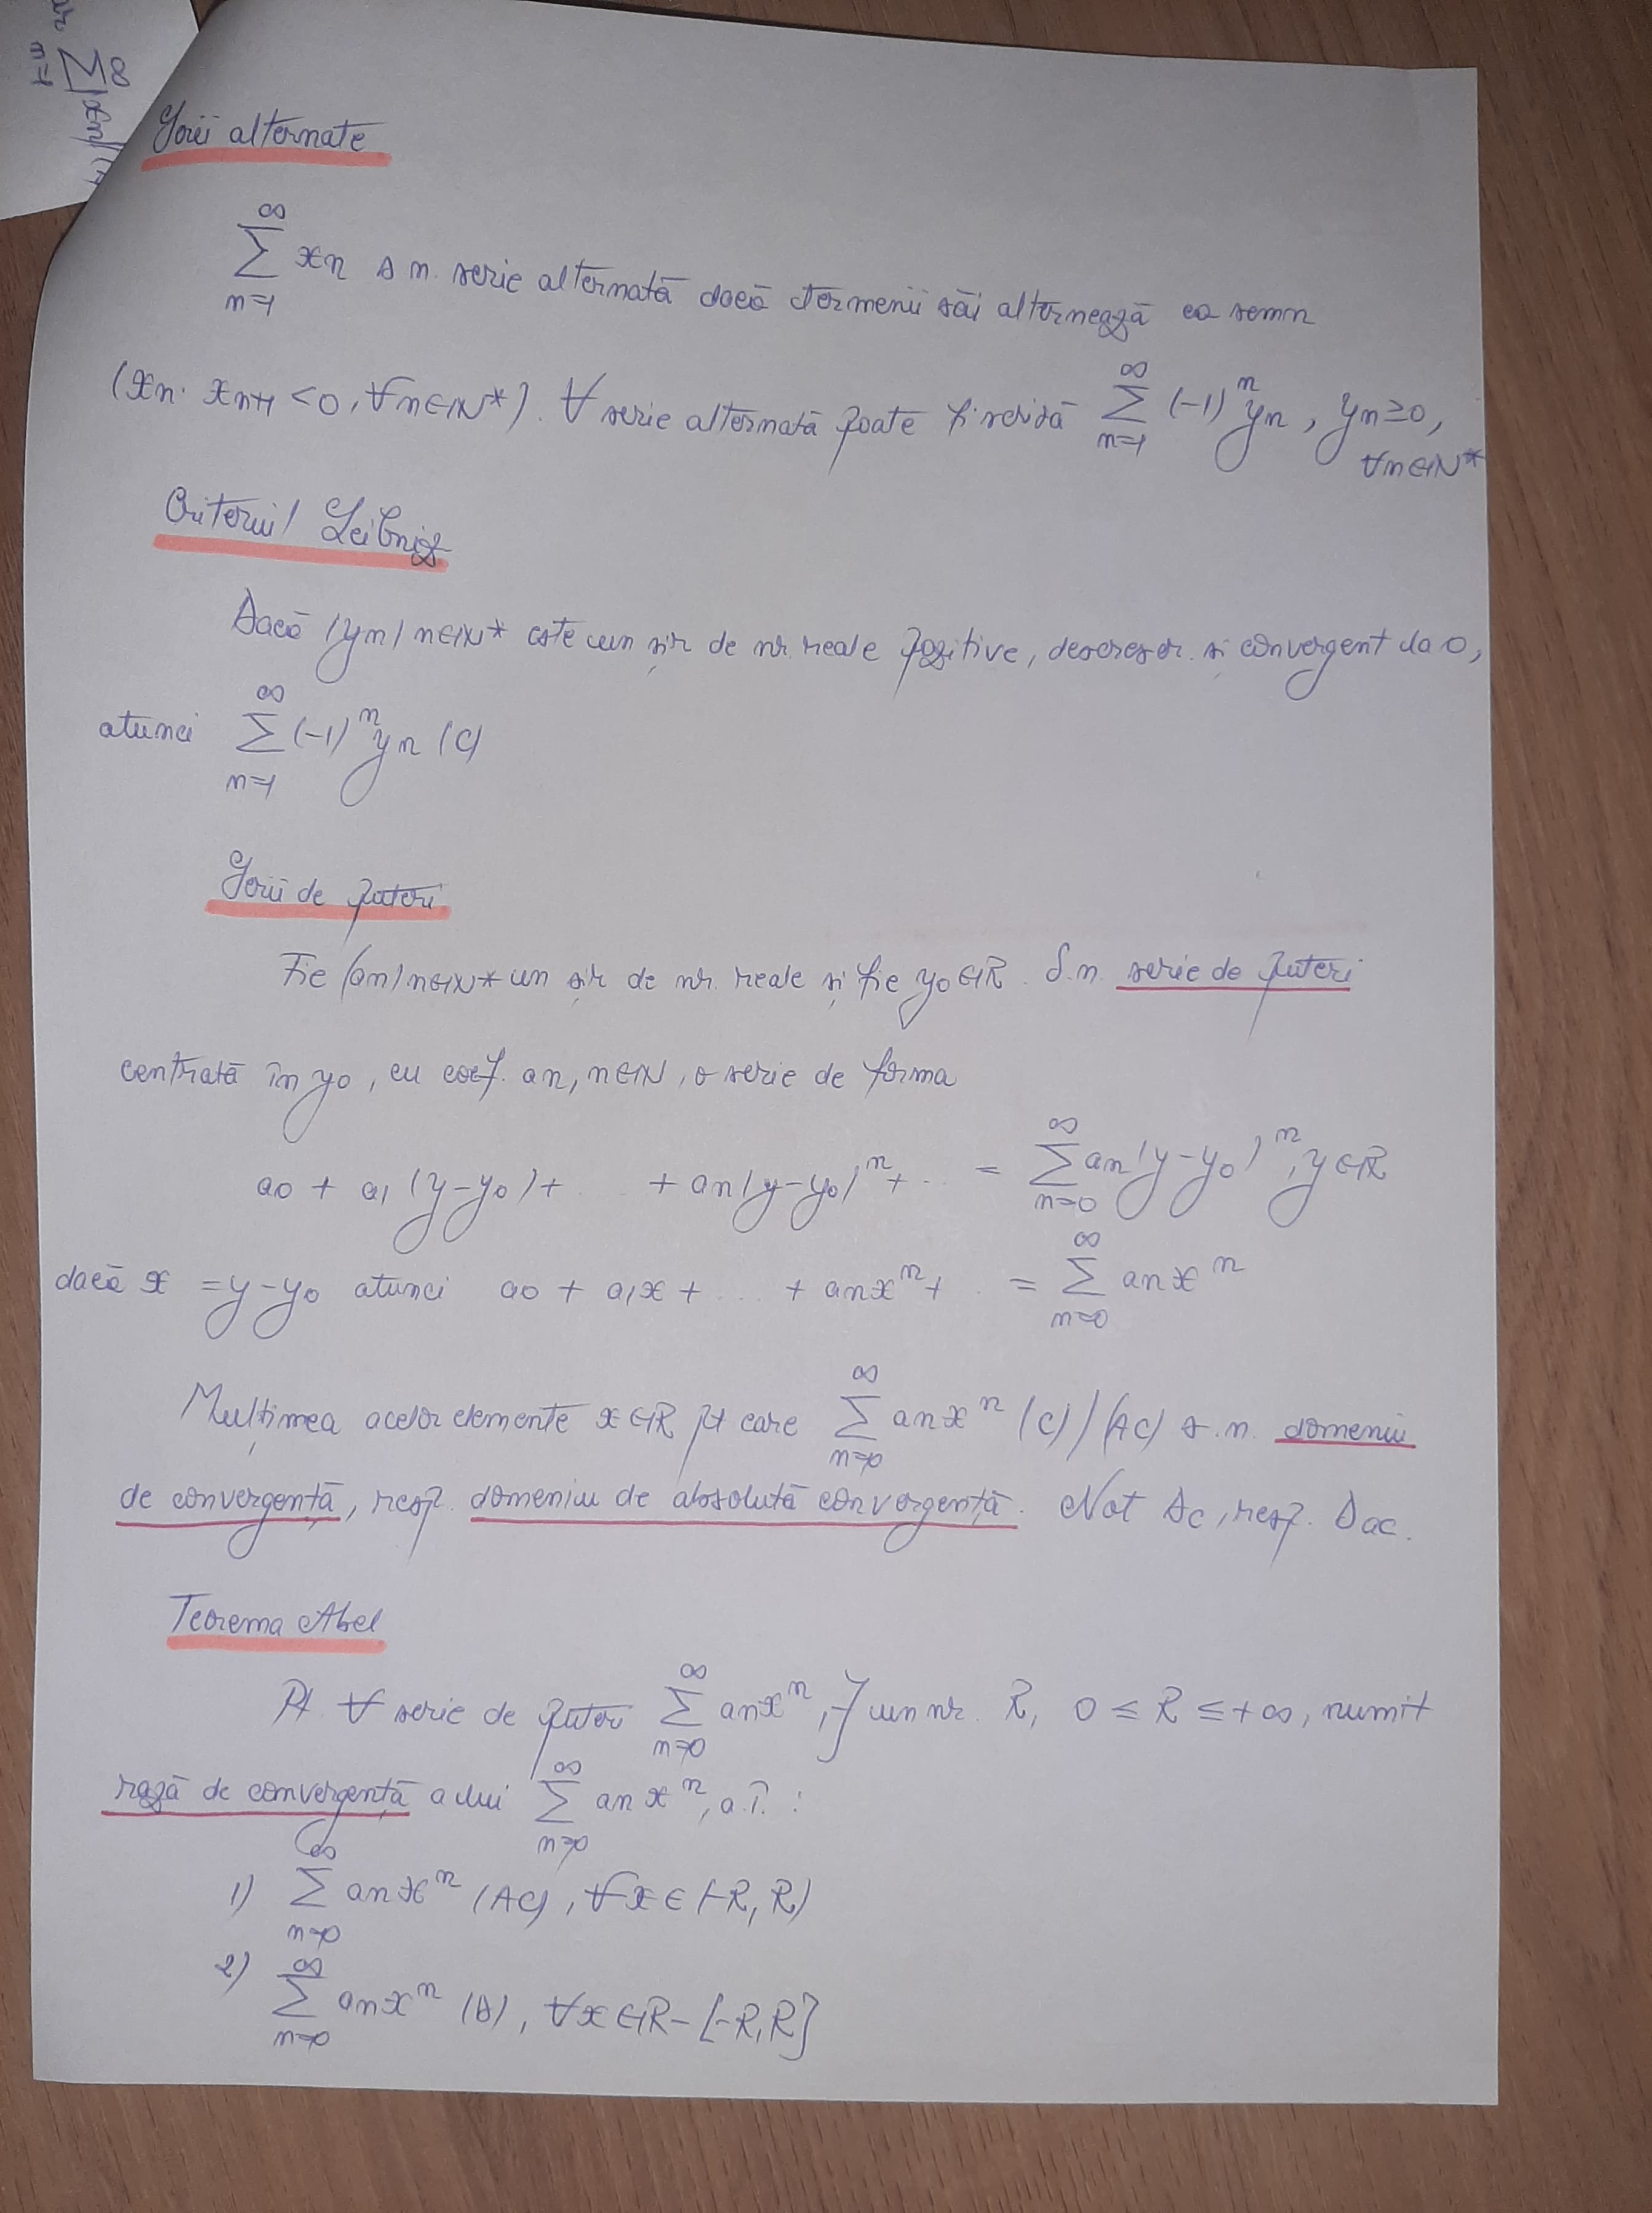 Serii alternate
∞
∑ xn s n. serie alternată dacă termenii săi alternează ca semn
n=1
(xn · xn+1 < 0, ∀n∈ℕ*). ∀ serie alternată poate fi scrisă ∑_{n=1}^{∞} (-1)^n yn, yn ≥ 0,
∀n∈ℕ*
Criteriul Leibniz
Dacă (yn) n∈ℕ* este un șir de nr. reale pozitive, descresc. și convergent la 0,
atunci ∑_{n=1}^{∞} (-1)^n yn (C)
Serii de puteri
Fie (an) n∈ℕ* un șir de nr. reale și fie y0∈ℝ. S.n. serie de puteri
centrată în y0, cu coef. an, n∈ℕ, o serie de forma
a0 + a1 (y-y0) + ... + an(y-y0)^n + ... = ∑_{n=0}^{∞} an(y-y0)^n, y∈ℝ
dacă x = y-y0 atunci a0 + a1x + ... + anx^n + ... = ∑_{n=0}^{∞} anx^n
Mulțimea acelor elemente x∈ℝ pt care ∑_{n=0}^{∞} anx^n (C)/(AC) s.n. domeniu
de convergență, resp. domeniu de absolută convergență. Not Dc, resp. Dac.
Teorema Abel
Pt. ∀ serie de puteri ∑_{n=0}^{∞} anx^n, ∃ un nr. R, 0 ≤ R ≤ +∞, numit
rază de convergență a lui ∑_{n=0}^{∞} anx^n, a.î. :
1) ∑_{n=0}^{∞} anx^n (AC), ∀x∈(-R, R)
2) ∑_{n=0}^{∞} anx^n (D), ∀x∈ℝ-[-R,R]